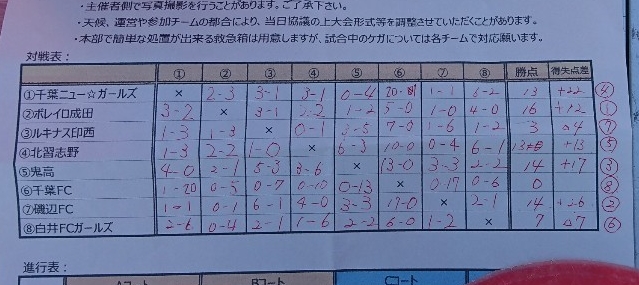 ・主催者側で写真撮影を行うことがあります。ご了承下さい。
・天候、運営や参加チームの都合により、当日協議の上大会形式等を調整させていただくことがあります。
・本部で簡単な処置が出来る救急箱は用意しますが、試合中のケガについては各チームで対応願います。
対戦表：
① ② ③ ④ ⑤ ⑥ ⑦ ⑧ 勝点 得失点差
①千葉ニュー☆ガールズ × 2-3 3-1 3-1 0-4 20- 1-1 6-2 13 +22 ④
②ボレイロ成田 3-2 × 3-1 2-2 1-2 5-0 1-0 4-0 16 +12 ①
③ルキナス印西 1-3 1-3 × 0-1 3-5 7-0 1-6 1-2 3 △4 ⑦
④北習志野 1-3 2-2 1-0 × 6-3 10-0 0-4 6-1 13 +13 ⑤
⑤鬼高 4-0 2-1 5-3 3-6 × 13-0 3-3 2-2 14 +17 ③
⑥千葉FC 1-20 0-5 0-7 0-10 0-13 × 0-17 0-6 0 ⑧
⑦磯辺FC 1-1 0-1 6-1 4-0 3-3 17-0 × 2-1 14 +26 ②
⑧白井FCガールズ 2-6 0-4 2-1 1-6 2-2 6-0 1-2 × 7 △7 ⑥
進行表：
Aコート Bコート Cコート